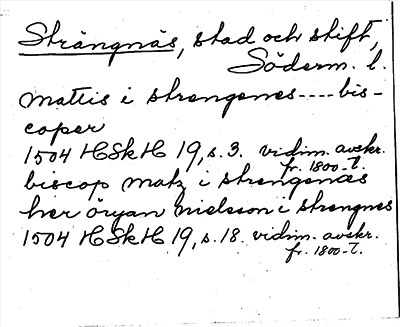 Strängnäs, stad och stift,
Söderm. l.
mattis i strengenes ---- bis-
coper
1504 HSkH 19, s. 3. vidim. avskr.
fr. 1800-t.
biscop matz i strengenäs
her öryan nielsson i strengnes
1504 HSkH 19, s. 18. vidim. avskr.
fr. 1800-t.